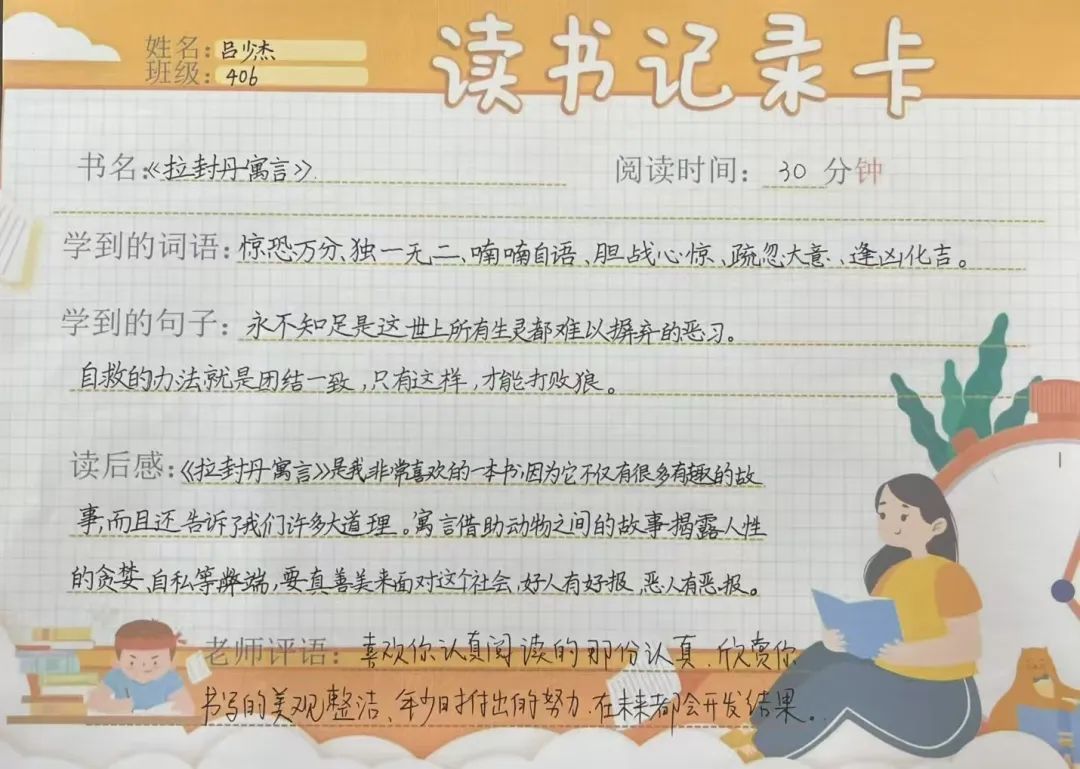 读书记录卡
姓名：吕少杰
班级：406
书名：《拉封丹寓言》. 阅读时间：30 分钟
学到的词语：惊恐万分、独一无二、喃喃自语、胆战心惊、疏忽大意、逢凶化吉。
学到的句子：永不知足是这世上所有生灵都难以摒弃的恶习。
自救的办法就是团结一致，只有这样，才能打败狼。
读后感：《拉封丹寓言》是我非常喜欢的一本书，因为它不仅有很多有趣的故
事，而且还告诉了我们许多大道理。寓言借助动物之间的故事揭露人性
的贪婪、自私等弊端，要真善美来面对这个社会，好人有好报，恶人有恶报。
老师评语：喜欢你认真阅读的那份认真，欣赏你
书写的美观整洁、年少时付出的努力，在未来都会开发结果。